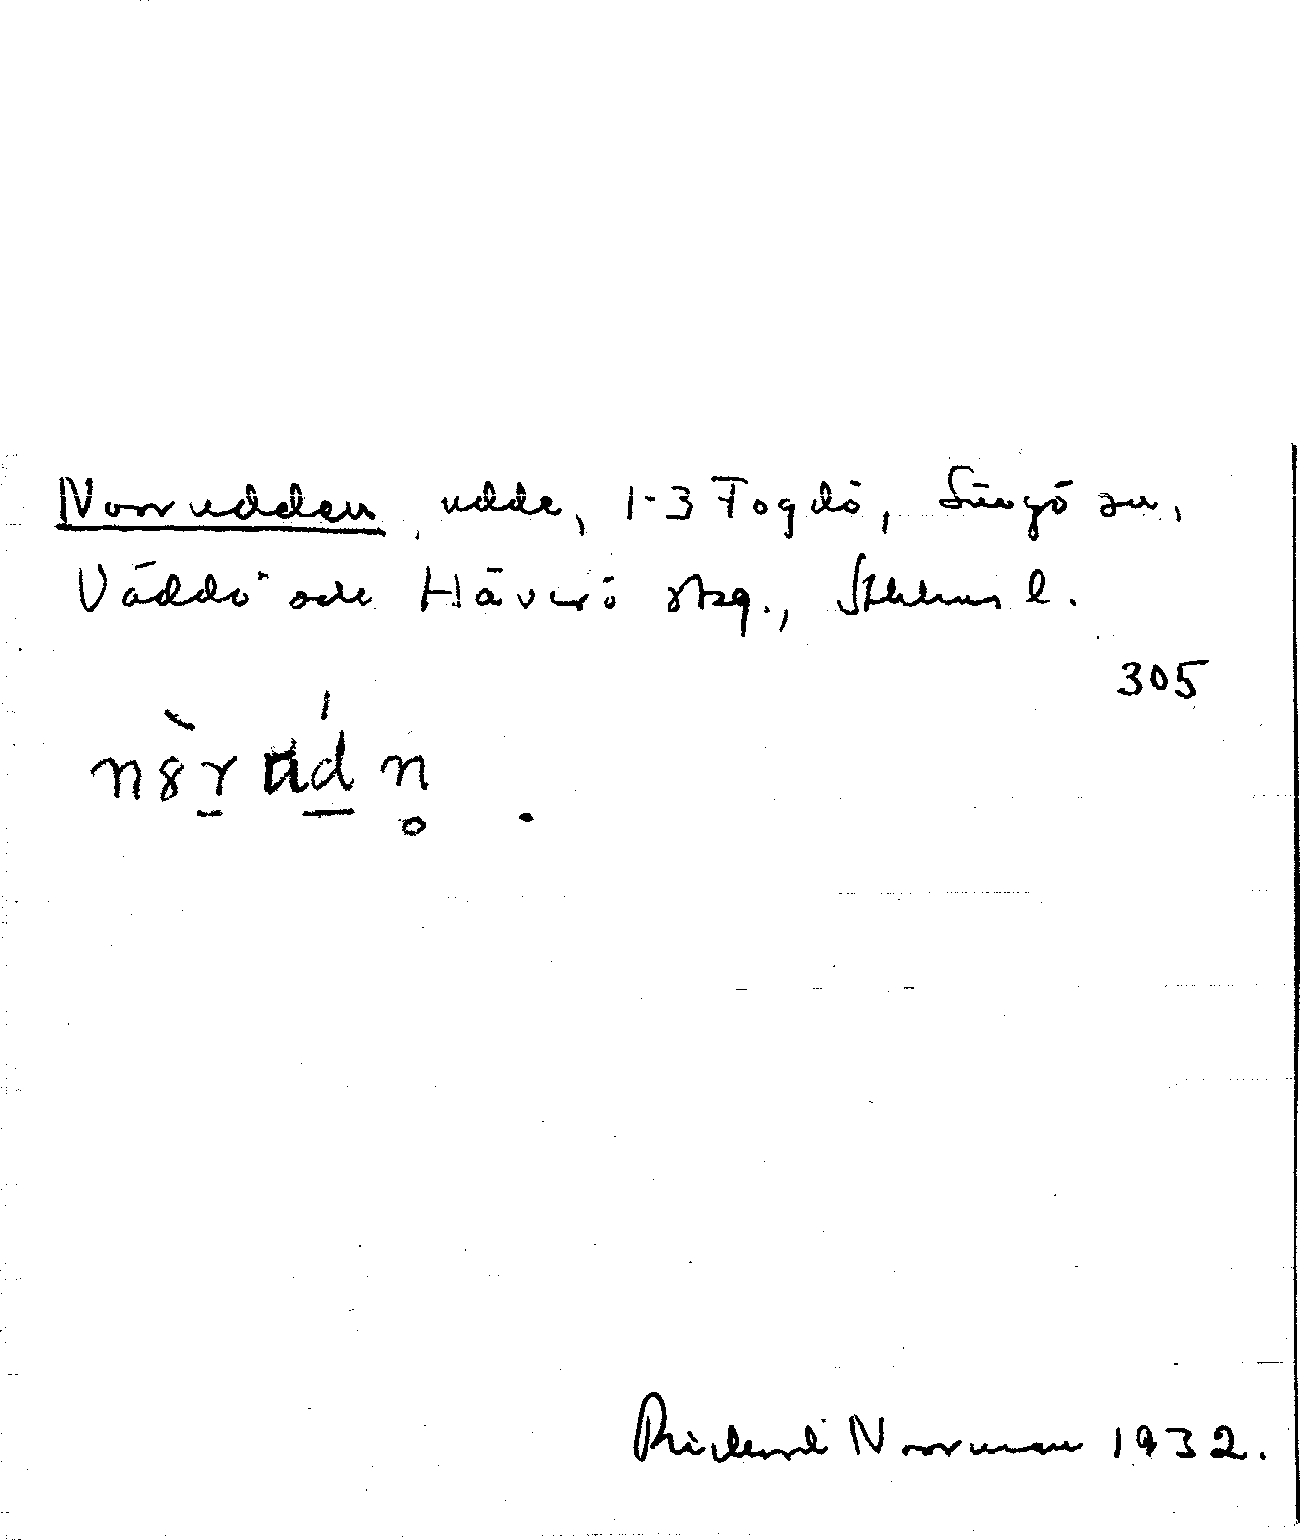 Norrudden, udde, 1-3 Fogdö, Singö sn,
Väddö och Häverö skg., Sthlms l.
305
Richard Norrman 1932.